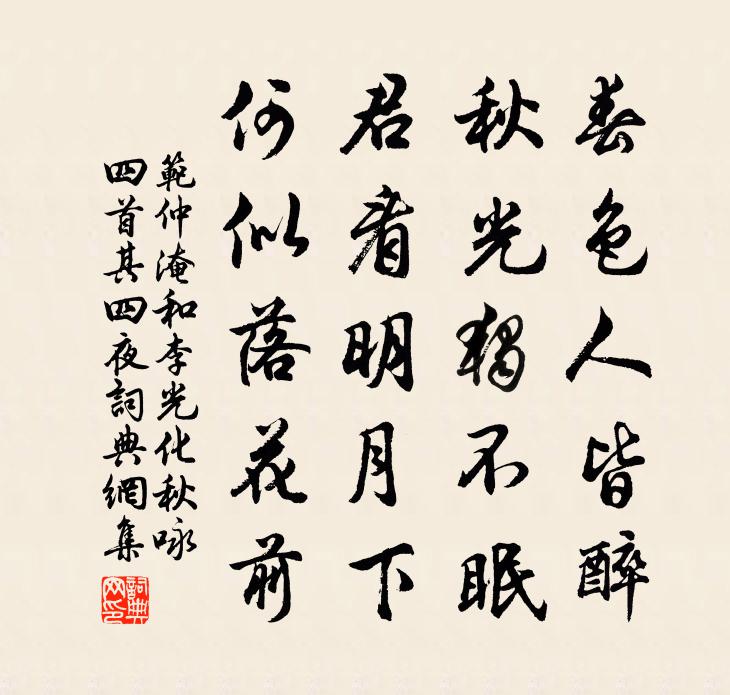 春色人皆醉
秋光獨不眠
君看明月下
何似落花前
範仲淹和李光化秋咏
四首其四夜詞典網集
詞典
网印